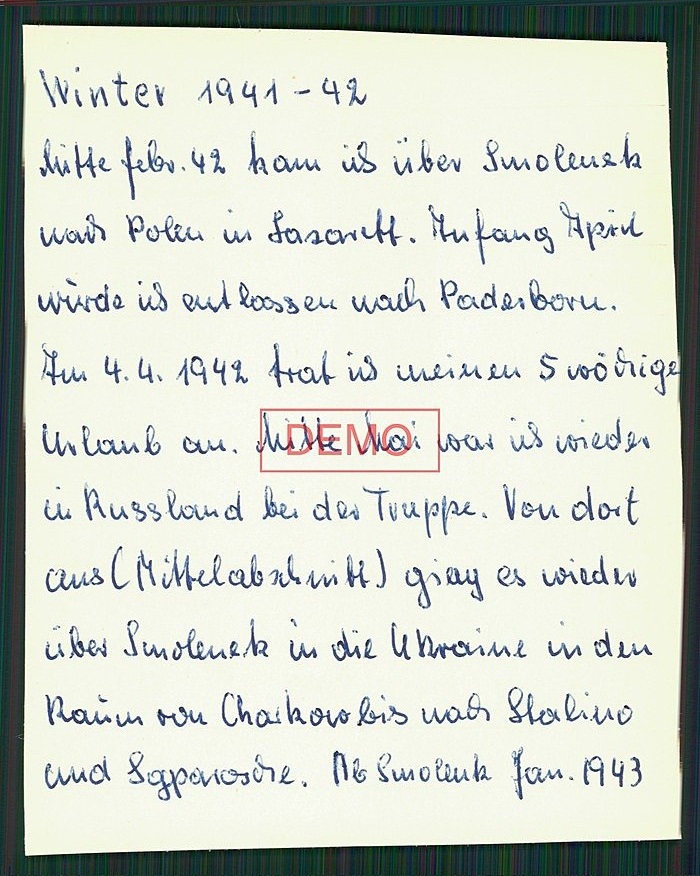 Winter 1941-42
Mitte Febr. 42 kam ich über Smolensk
nach Polen in Lazarett. Anfang April
wurde ich entlassen nach Paderborn.
Am 4.4. 1942 trat ich meinen 5 wöchige
Urlaub an. Mitte Mai war ich wieder
DEMO
in Russland bei der Truppe. Von dort
aus (Mittelabschnitt) ging es wieder
über Smolensk in die Ukraine in den
Raum von Charkow bis nach Stalino
und Ab Smolensk Jan. 1943